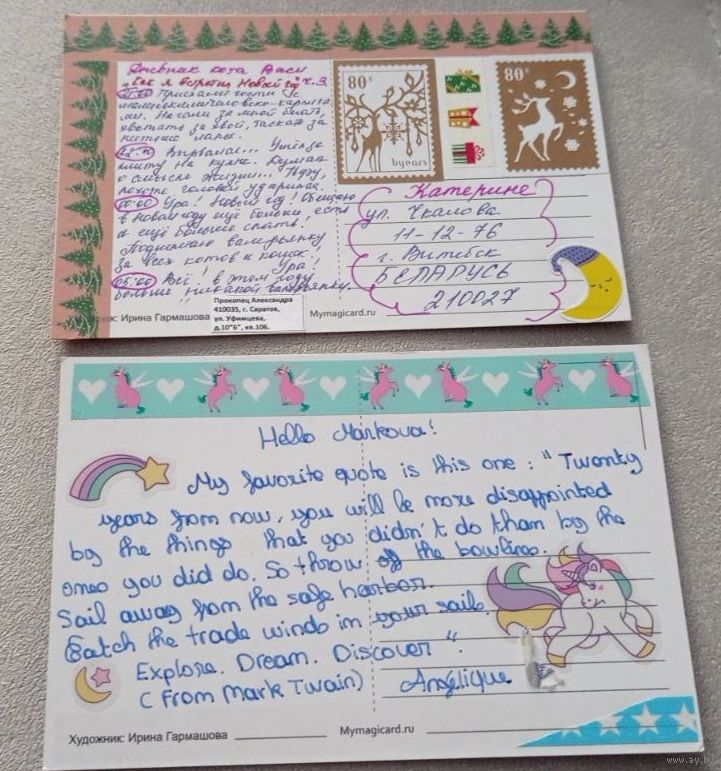 Дневник кота Васи
"Как я встретил Новый год" Ч. 3.
Приехали гости с
Начали за мной бегать,
хватать за хвост, таскать за
Вырвался... Ушёл за
плиту на кухне. Думал
о смысле жизни...
головой ударился.
00:00 Ура! Новый год! Обещаю
в Новом году ещё больше есть
и ещё больше спать!
Поднимаю валерьянку
за всех котов и кошек!
Ура!
05:00 Всё! в этом году
больше никакой валерьянки.
80ª
byears
80ª
Катерине
ул. Чкалова
11-12-76
г. Витебск
БЕЛАРУСЬ
210027
Прокопец Александра
410035, г. Саратов,
ул. Уфимцева,
д.10"Б", кв.106.
Ирина Гармашова
Mymagicard.ru
Hello Markova!
My favorite quote is this one: "Twenty
years from now, you will be more disappointed
by the things that you didn't do tham by the
ones you did do. So throw off the bowlines.
Sail away from the safe harbor.
Catch the trade winds in your sails.
Explore. Dream. Discover".
(From Mark Twain) Angelique
Художник: Ирина Гармашова
Mymagicard.ru
www.ay.by